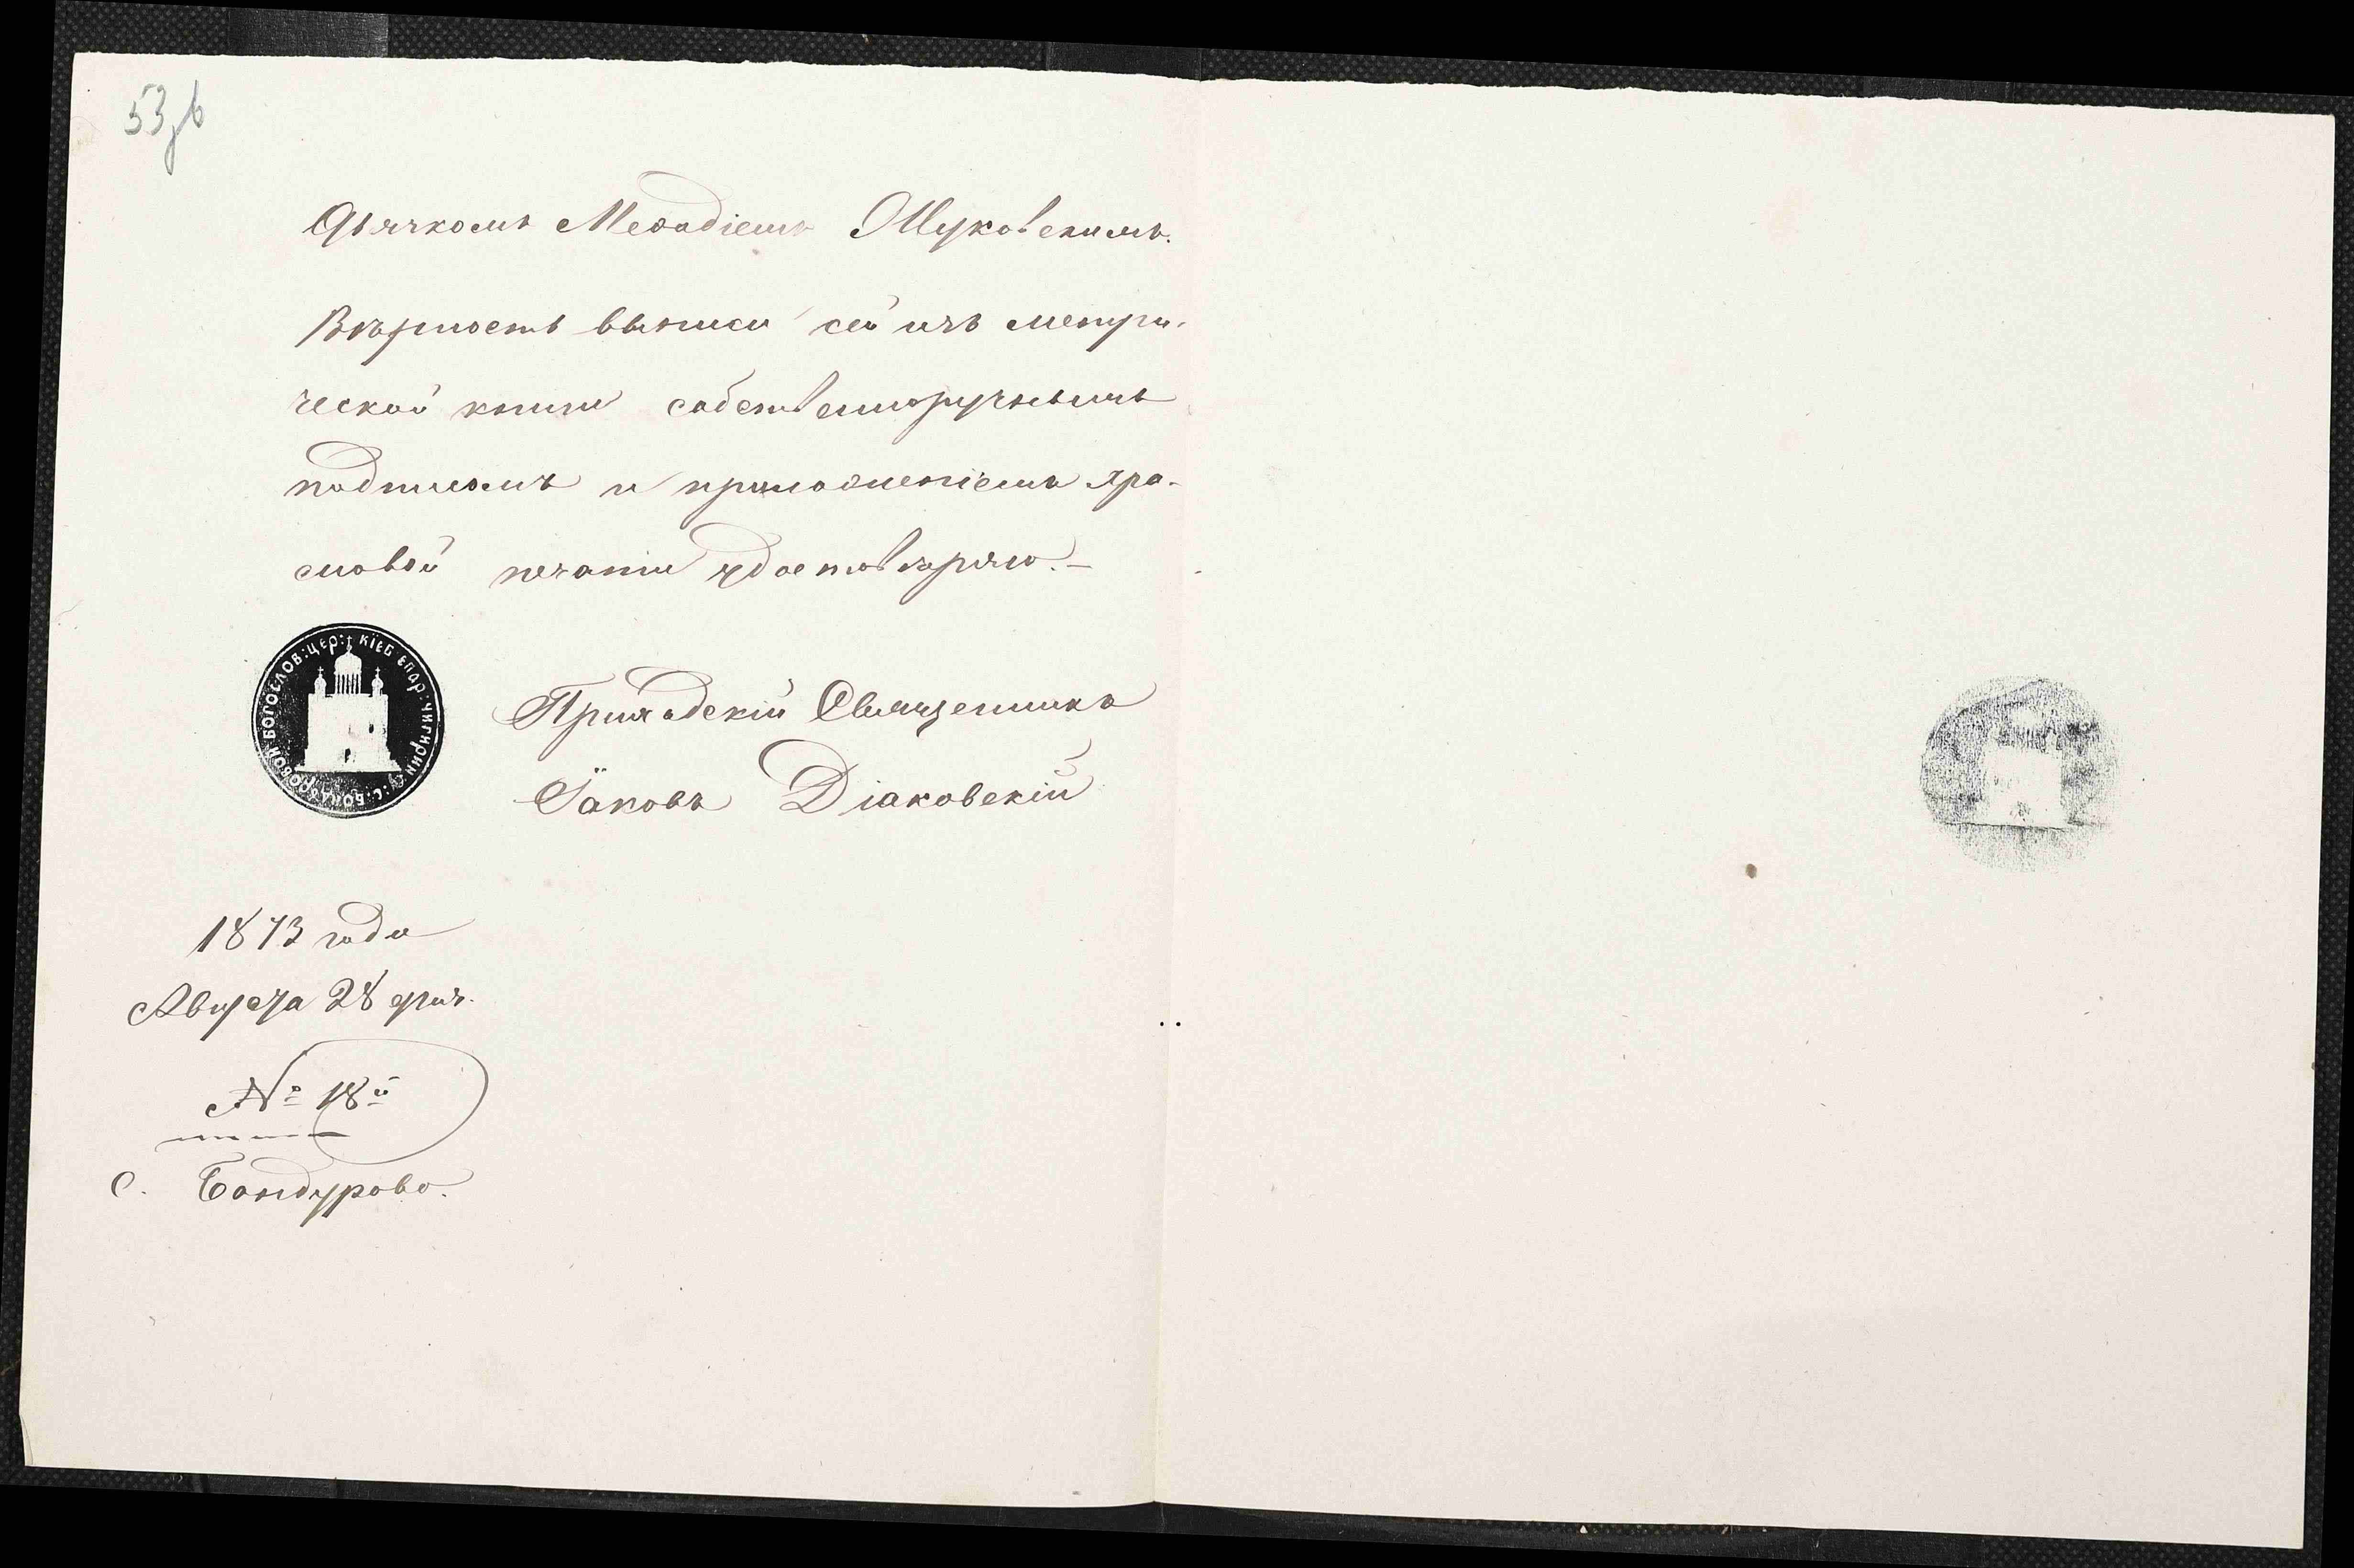 53зв
Дьячкомъ Меѳодіемъ Жуковскимъ.
Вѣрность выписи сей изъ метри-
ческой книги собственноручнымъ
подписомъ и приложеніемъ хра-
мовой печати удостовѣряю.-
КІЕВ: ЕПАР: ЧИГИРИН: У: С: БОНДУРОВОЙ БОГОСЛОВ: ЦЕР:
Приходскій Священникъ
Іаковъ Діаковскій
1873 года
Августа 28 дня.
№ 18й
С. Бондурово.